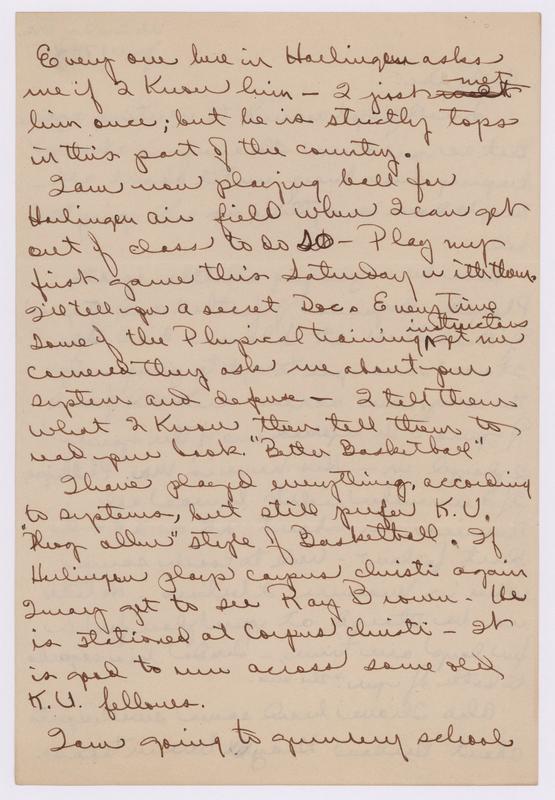 Every one here in Harlingen asks
me if I Know him – I just met
him once; but he is strictly tops
in this part of the country.
I am now playing ball for
Harlingen air field when I can get
out of class to do so – Play my
first game this Saturday with them
I'll tell you a secret Doc. Everytime
some of the Physical training instructors get me
cornered they ask me about your
system and defense – I tell them
what I Know then tell them to
read your book. "Better Basketball"
I have played everything, according
to systems, but still prefer K.U.
"Phog allen" style of Basketball. If
Harlingen plays corpus christi again
I may get to see Ray Brown – He
is stationed at Corpus christi – It
is good to run across some old
K.U. fellows.
I am going to gunnery school